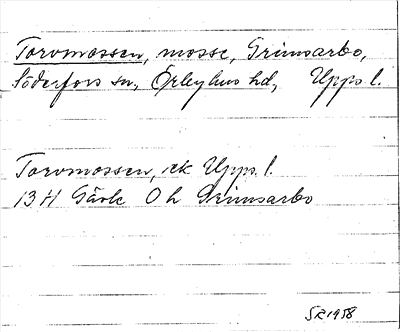 Torvmossen, mosse, Grimsarbo,
Söderfors sn, Örbyhus hd, Upps. l.
Torvmossen, ek Upps. l.
13 H Gävle 0 h Grimsarbo
SR 1958